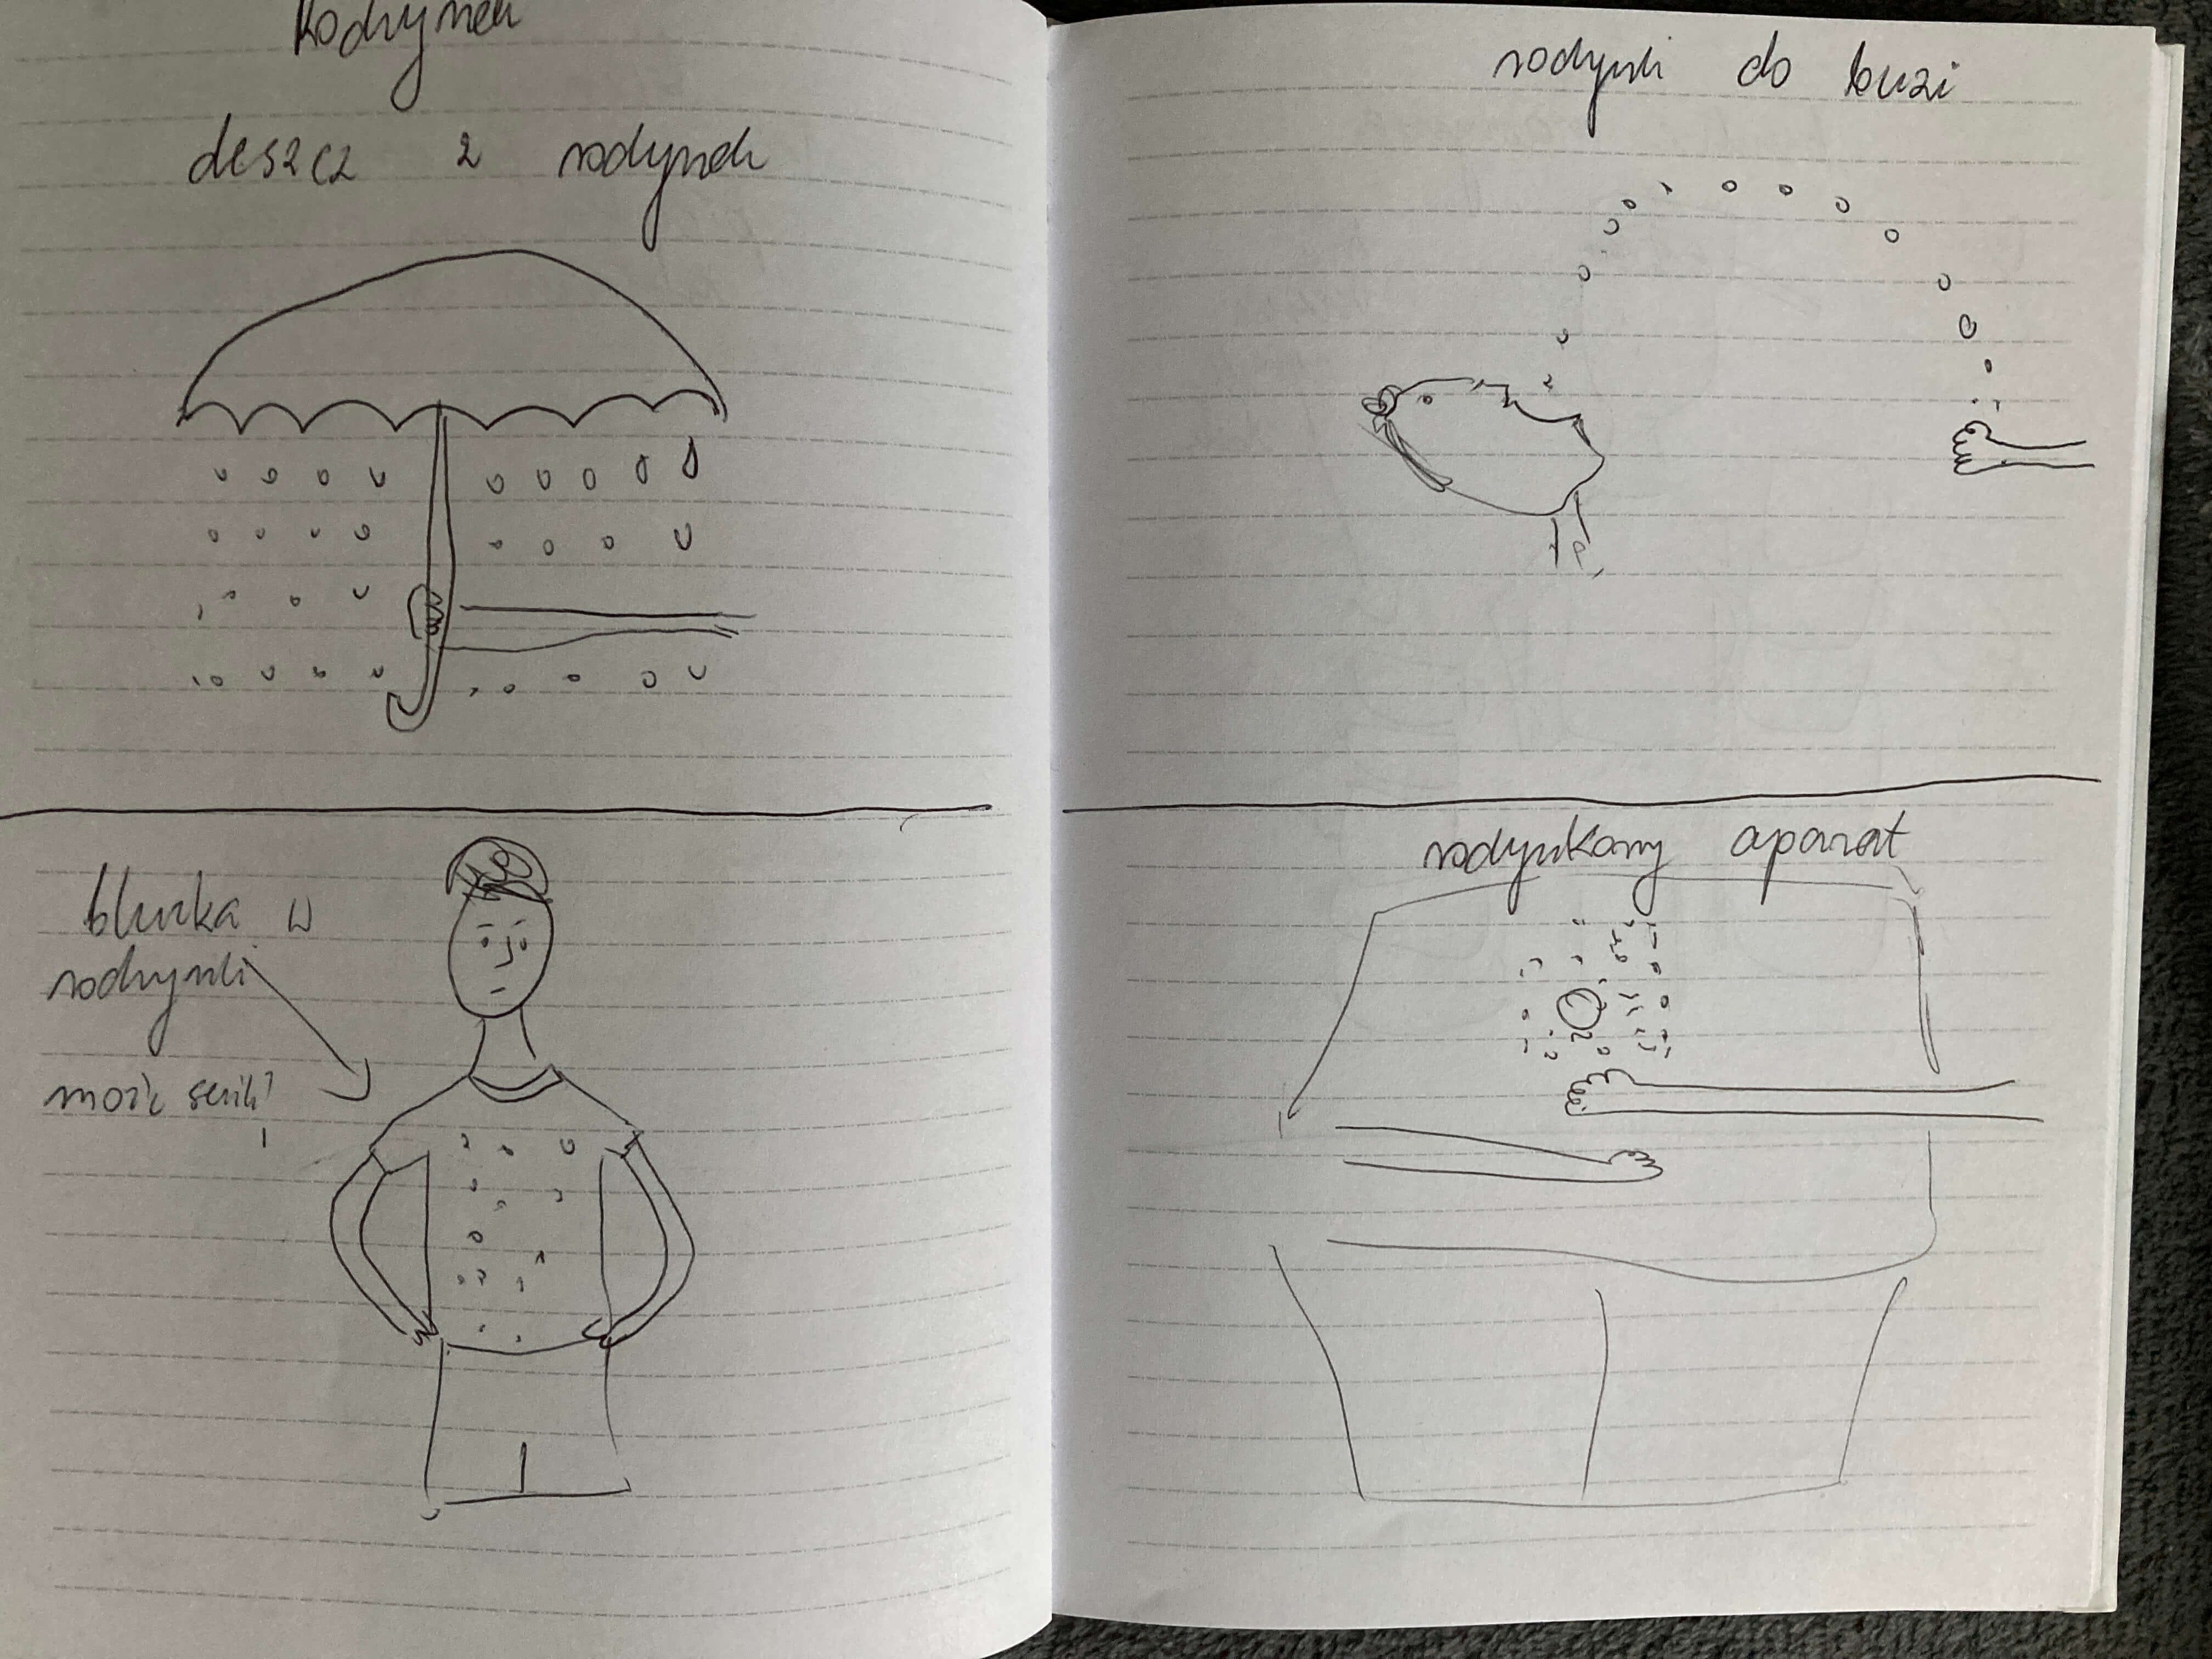 Rodzynek
deszcz z rodzynek
bluzka w
rodzynki
może serik?
rodzynki do buzi
rodzynkowy aparat